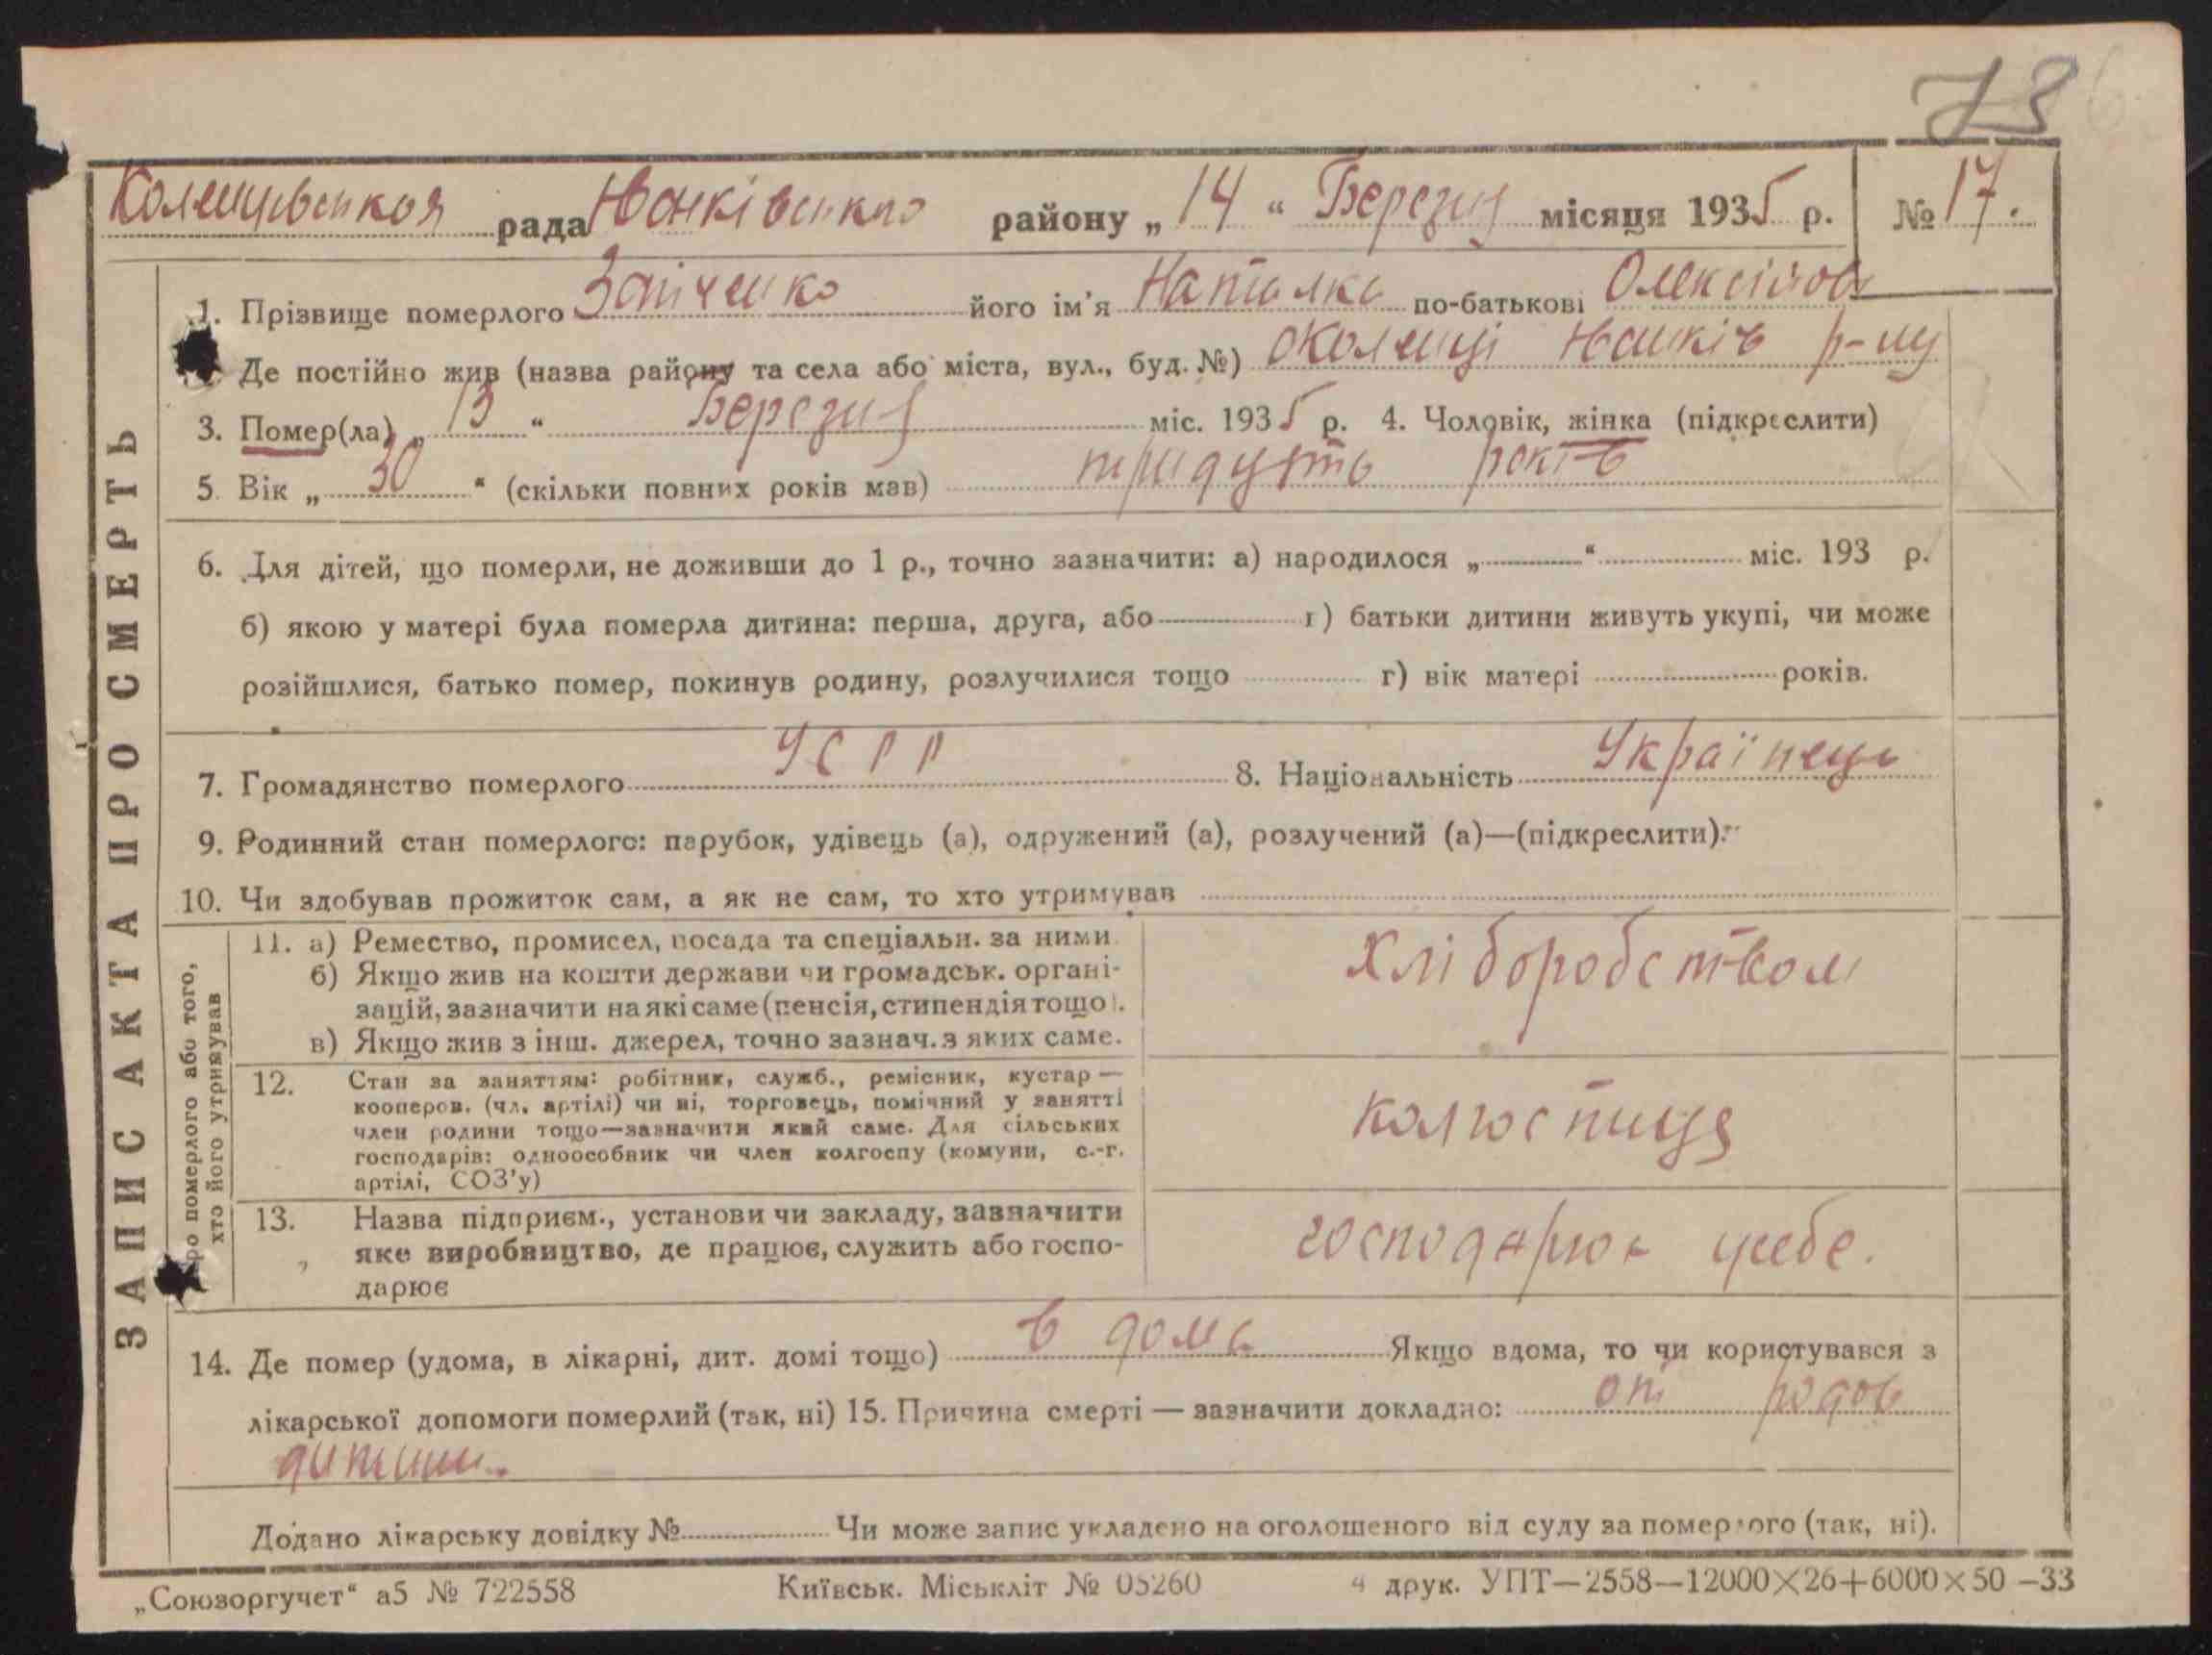 78
рада району „ 14 “ Березня місяця 1935 р. № 17.
ЗАПИС АКТА ПРО СМЕРТЬ
1. Прізвище померлого Заїченко його ім'я Наталка по-батькові Олексійов
Де постійно жив (назва району та села або міста, вул., буд. №) р-ну
3. Помер(ла) „ 13 “ Березня міс. 1935 р. 4. Чоловік, жінка (підкреслити)
5. Вік „ 30 “ (скільки повних років мав) тридцять років
6. Для дітей, що померли, не доживши до 1 р., точно зазначити: а) народилося „ “ міс. 193 р.
б) якою у матері була померла дитина: перша, друга, або г) батьки дитини живуть укупі, чи може
розійшлися, батько помер, покинув родину, розлучилися тощо г) вік матері років.
7. Громадянство померлого УСРР 8. Національність Українець
9. Родинний стан померлого: парубок, удівець (а), одружений (а), розлучений (а)—(підкреслити).
10. Чи здобував прожиток сам, а як не сам, то хто утримував
Про померлого або того,
хто його утримував
11. а) Ремество, промисел, посада та спеціальн. за ними.
б) Якщо жив на кошти держави чи громадськ. органі-
зацій, зазначити на які саме (пенсія, стипендія тощо).
в) Якщо жив з інш. джерел, точно зазнач. з яких саме.
Хліборобством
12. Стан за заняттям: робітник, служб., ремісник, кустар —
кооперов. (чл. артілі) чи ні, торговець, помічний у занятті
член родини тощо—зазначити який саме. Для сільських
господарів: одноособник чи член колгоспу (комуни, с.-г.
артілі, СОЗ'у)
13. Назва підприєм., установи чи закладу, зазначити
яке виробництво, де працює, служить або госпо-
дарює
14. Де помер (удома, в лікарні, дит. домі тощо) в дома Якщо вдома, то чи користувався з
лікарської допомоги померлий (так, ні) 15. Причина смерті — зазначити докладно: от родов
дитини.
Додано лікарську довідку № Чи може запис укладено на оголошеного від суду за померлого (так, ні).
„Союзоргучет“ а5 № 722558 Київськ. Міськліт № 05260 4 друк. УПТ—2558—12000×26+6000×50 —33